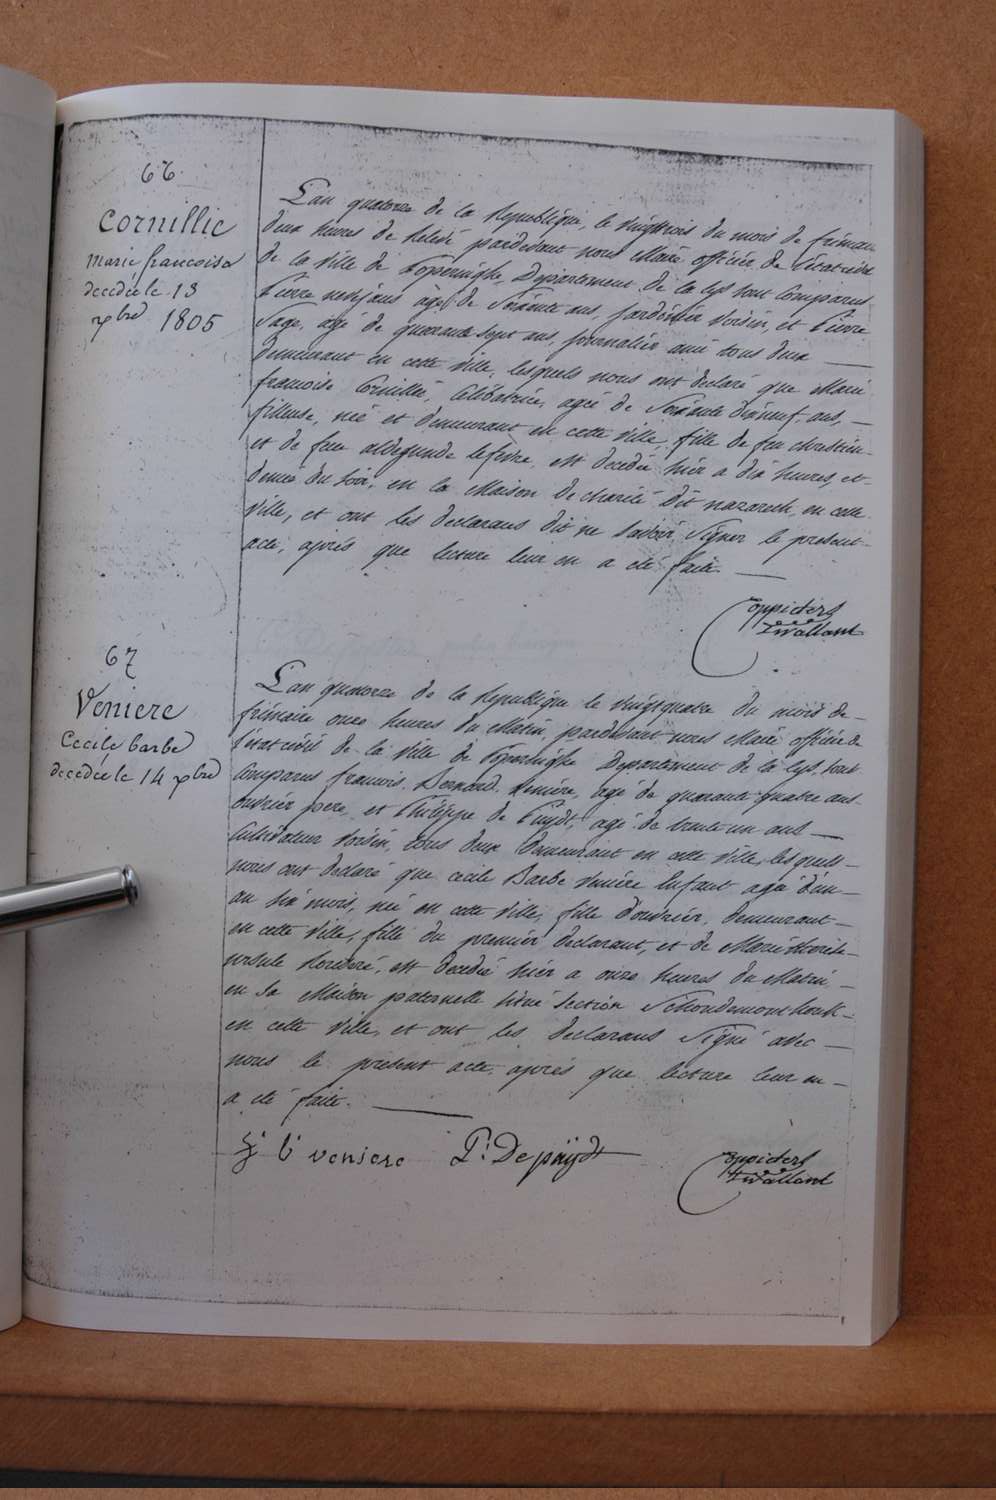 66.
Cornillie
marie francoise
decedée le 13
xbre 1805
L'an quatorze de la Republique, le vingttrois du mois de frimaire
deux heures de relevé pardevant nous Maire officier de l'état civil
de la ville de Poperinghe, Departement de la lys sont Comparus
Pierre agé de Soixante ans, jardinier Voisin, et Pierre
Sage, agé de quarante sept ans, journalier ami tous deux
demeurant en cette ville, lesquels nous ont declaré que Marie
francoise Cornillie, Celibatrice, agée de Soixante dixneuf ans,
fileuse, née et demeurant en cette ville, fille de feu chretien
et de feu aldegunde lefevre, est decedée hier a dix heures, et
demie du Soir, en la Maison de charité dit nazareth, en cette
ville, et ont les declarans dit ne Savoir Signer le present
acte, aprés que lecture leur en a été faite.
67
Veniere
Cecile barbe
decedée le 14 xbre
L'an quatorze de la Republique le vingtquatre du mois de
frimaire onze heures du Matin, pardevant nous Maire officier de
l'état civil de la ville de Poperinghe Departement de la lys, sont
Comparus francois Bernard Veniere, agé de quarante quatre ans
ouvrier pere, et Philippe de Puydt, agé de trente un ans
Cultivateur Voisin, tous deux Demeurant en cette ville, lesquels
nous ont declaré que cecile Barbe Veniere Enfant agée d'un
an six mois, née en cette ville, fille d'ouvrier, demeurant
en cette ville, fille du premier declarant, et de Marie therese
ursule est decedée hier a onze heures du Matin
en sa Maison paternelle situé Section
en cette ville, et ont les declarans Signé avec
nous le present acte, aprés que lecture leur en
a été faite.
f: b: veniere P: De puÿdt